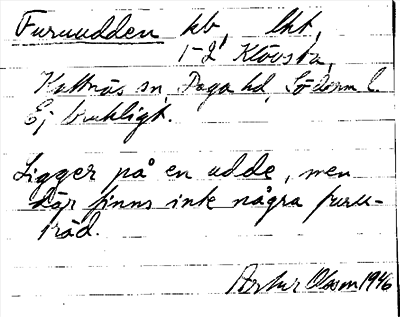 Furuudden hb, lht,
1-2 Klövsta,
Kattnäs sn, Daga hd, Söderm l.
Ej brukligt.
Ligger på en udde, men
där finns inte några furu-
träd.
Artur Olsson 1946